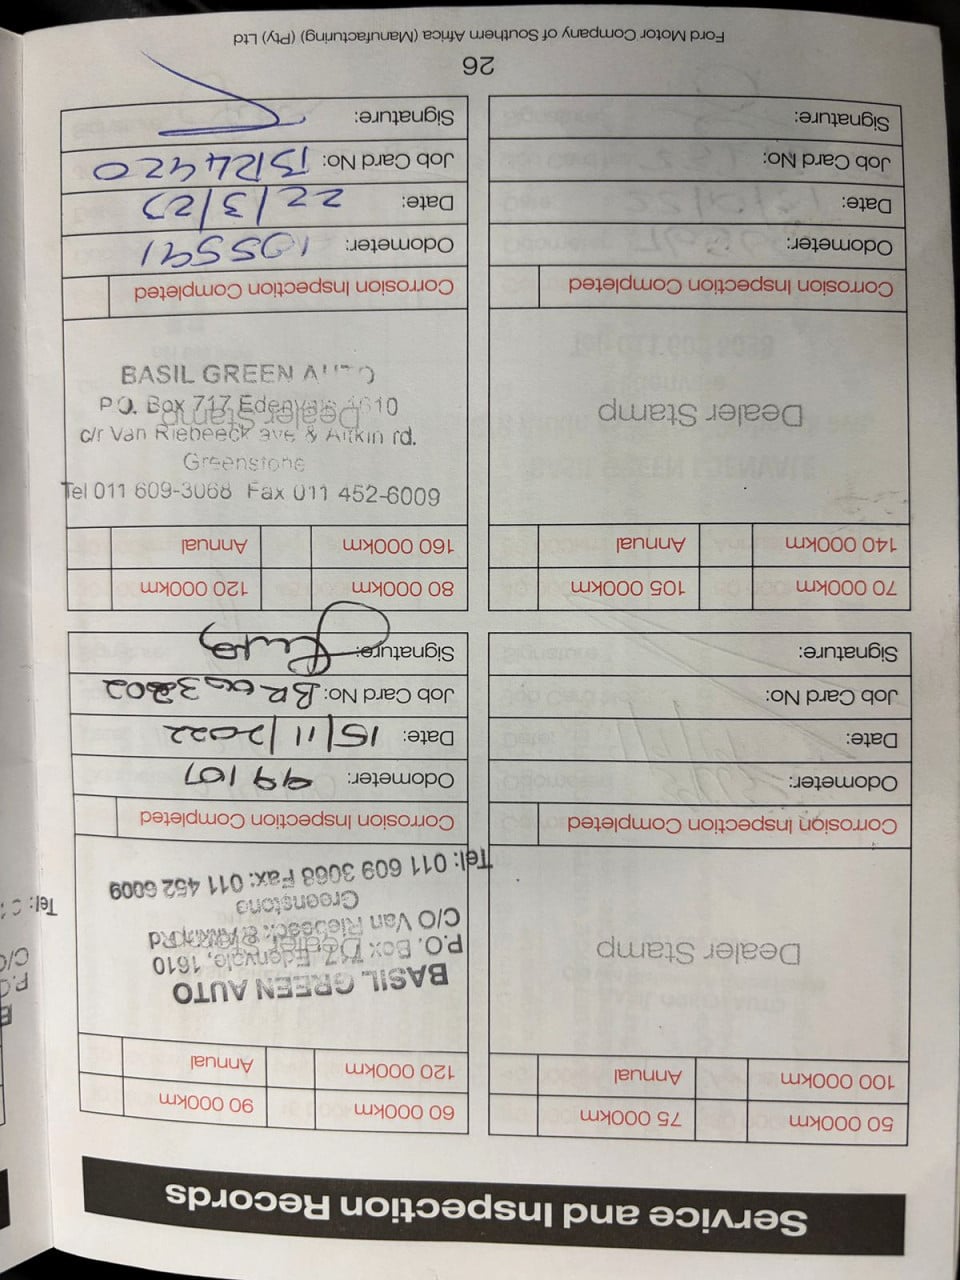 Service and Inspection Records
50 000km 75 000km
100 000km Annual
Dealer Stamp
Corrosion Inspection Completed
Odometer:
Date:
Job Card No:
Signature:
60 000km 90 000km
120 000km Annual
BASIL GREEN AUTO
P.O. Box 717 Edenvale, 1610
Dealer Stamp
C/O Van Riebeeck & Rd
Greenstone
Tel: 011 609 3068 Fax: 011 452 6009
Corrosion Inspection Completed
Odometer: 99107
Date: 15/11/2022
Job Card No:
Signature:
70 000km 105 000km
140 000km Annual
Dealer Stamp
Corrosion Inspection Completed
Odometer:
Date:
Job Card No:
Signature:
80 000km 120 000km
160 000km Annual
Dealer Stamp
BASIL GREEN AUTO
P.O. Box 717 Edenvale 1610
c/r Van Riebeeck ave & Aitkin rd.
Greenstone
Tel 011 609-3068 Fax 011 452-6009
Corrosion Inspection Completed
Odometer: 105591
Date: 22/3/23
Job Card No: BR24420
Signature:
26
Ford Motor Company of Southern Africa (Manufacturing) (Pty) Ltd